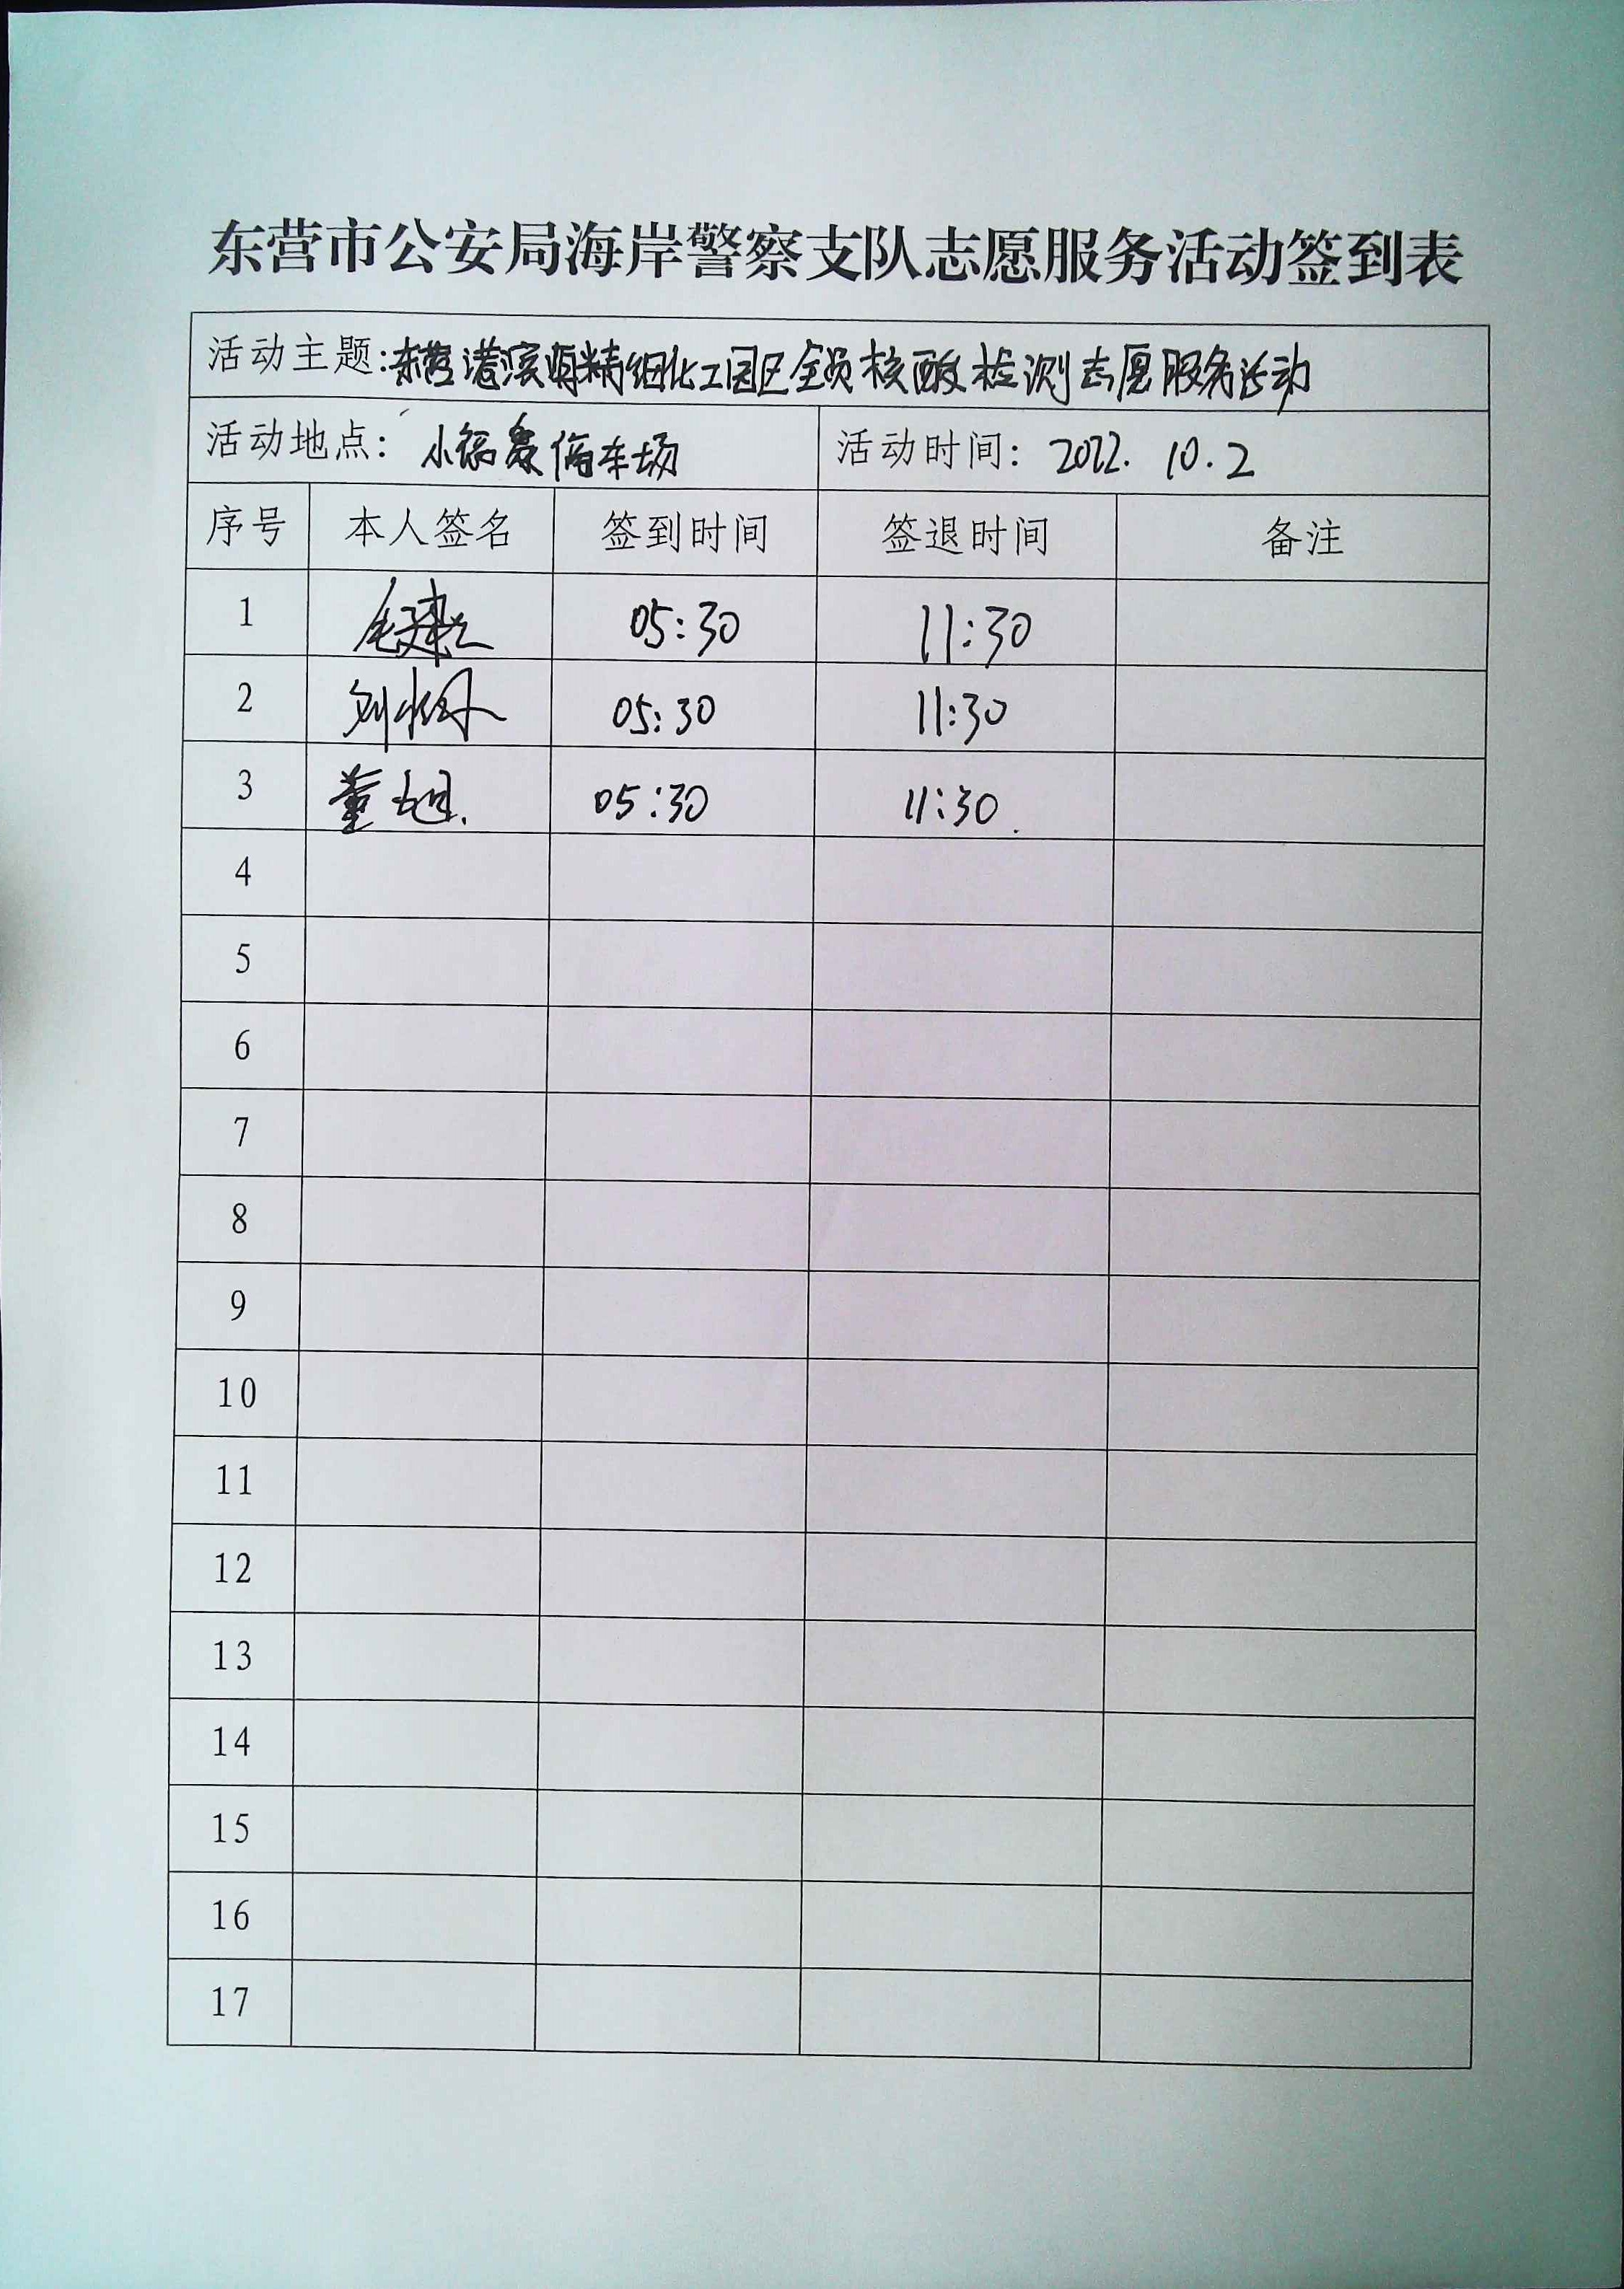 东营市公安局海岸警察支队志愿服务活动签到表
活动主题:东营港滨海精细化工园区全员核酸检测志愿服务活动
活动地点: 小锅泉停车场 活动时间: 2022. 10. 2
序号 本人签名 签到时间 签退时间 备注
1 05:30 11:30
2 刘 05:30 11:30
3 董旭. 05:30 11:30.
4
5
6
7
8
9
10
11
12
13
14
15
16
17